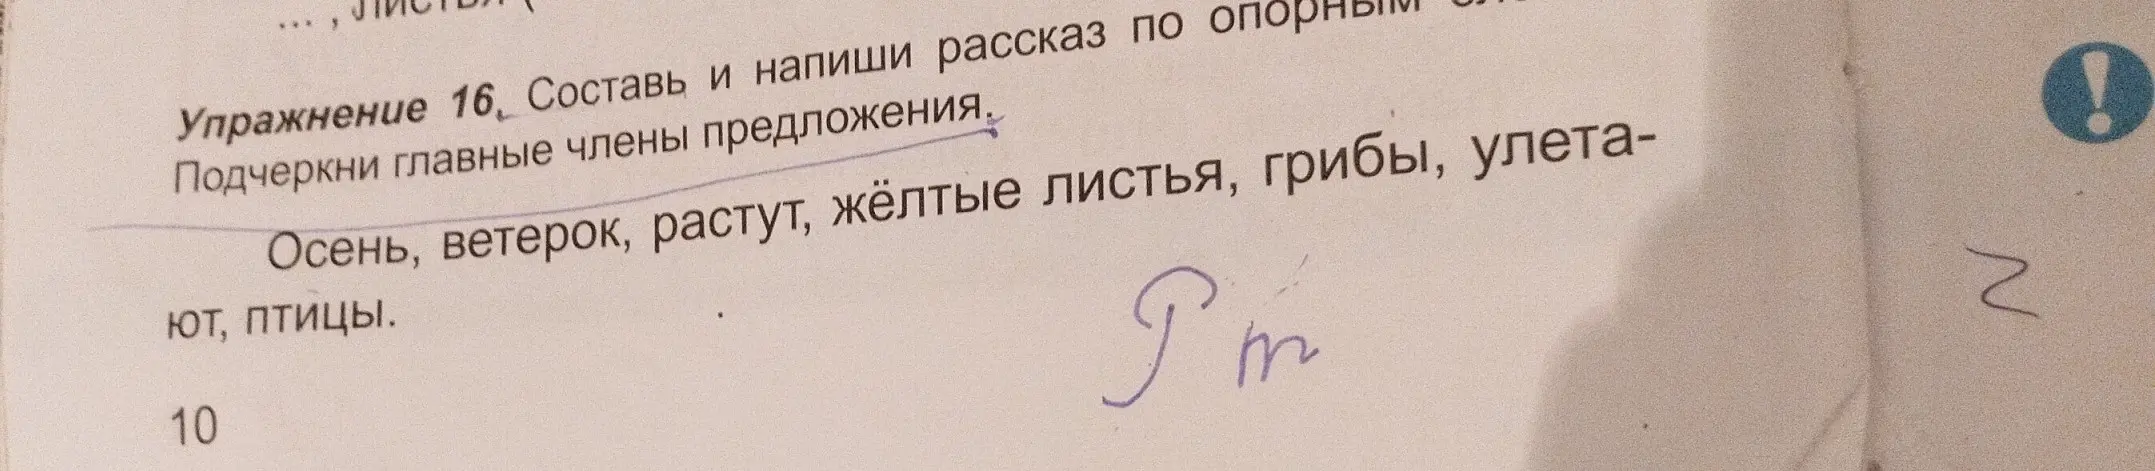 Упражнение 16. Составь и напиши рассказ по опорным
Подчеркни главные члены предложения.
Осень, ветерок, растут, жёлтые листья, грибы, улета-
ют, птицы.
10